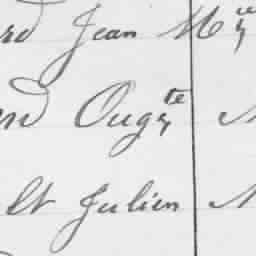 rd Jean Mce
nd Ougte N
lt Julien N